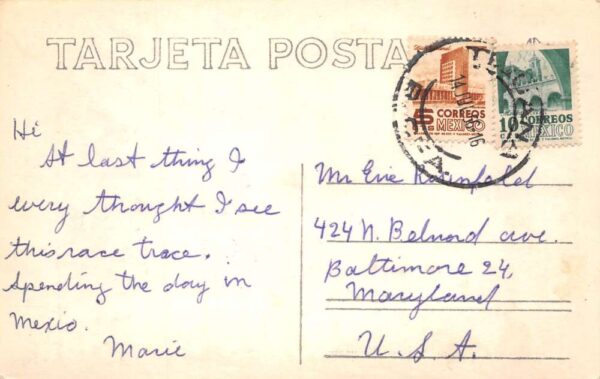 TARJETA POSTA
5
CORREOS
MEXICO
10
CORREOS
MEXICO
Hi
At last thing I
every thought I see
this race trace.
Spending the day in
Mexio.
Marie
Mr Eric Rosenfeld
424 N. Belnord ave.
Baltimore 24,
Maryland
U. S. A.